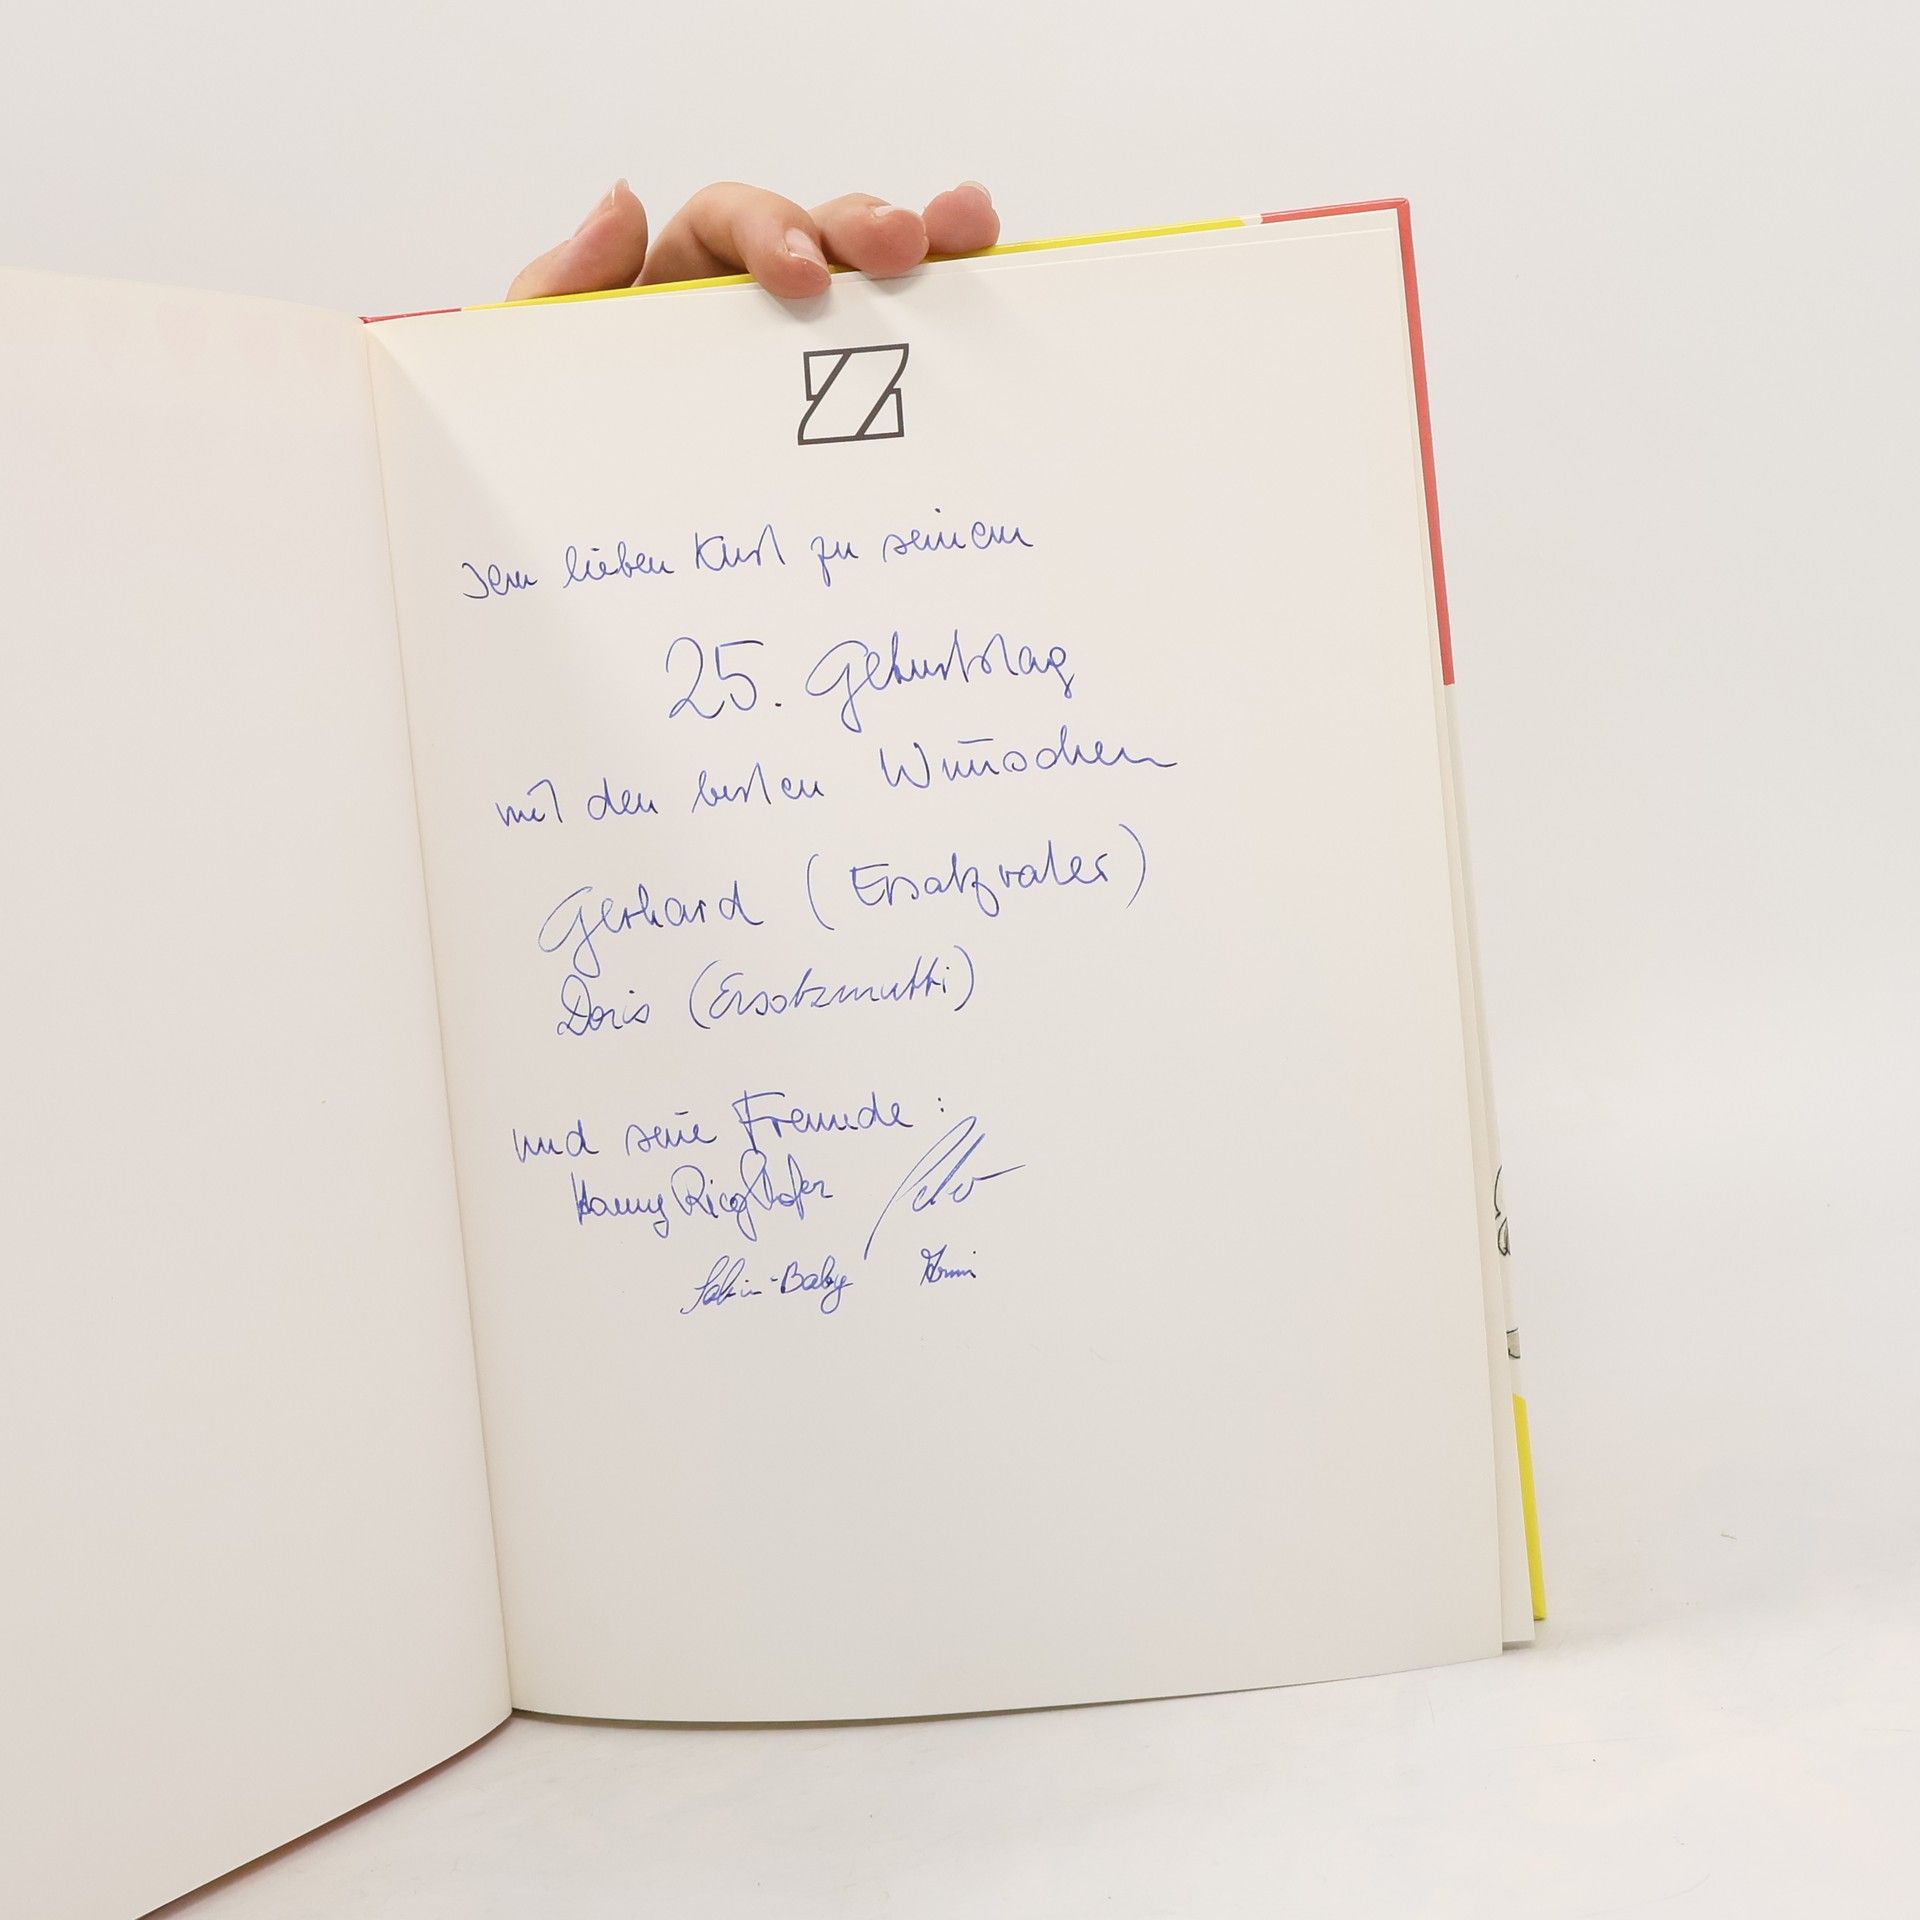 Dem lieben Kurt zu seinem
25. Geburtstag
mit den besten Wünschen
Gerhard (Ersatzvater)
Doris (Ersatzmutti)
und seine Freunde:
Hanny Rieglhofer Peter
Sabin-Baby